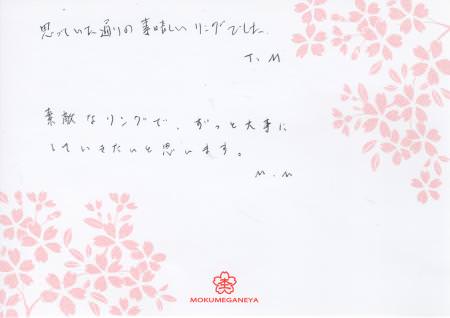 思っていた通りの素晴しいリングでした.
T.M
素敵なリングで、ずっと大事に
していきたいと思います。
M.M
MOKUMEGANEYA